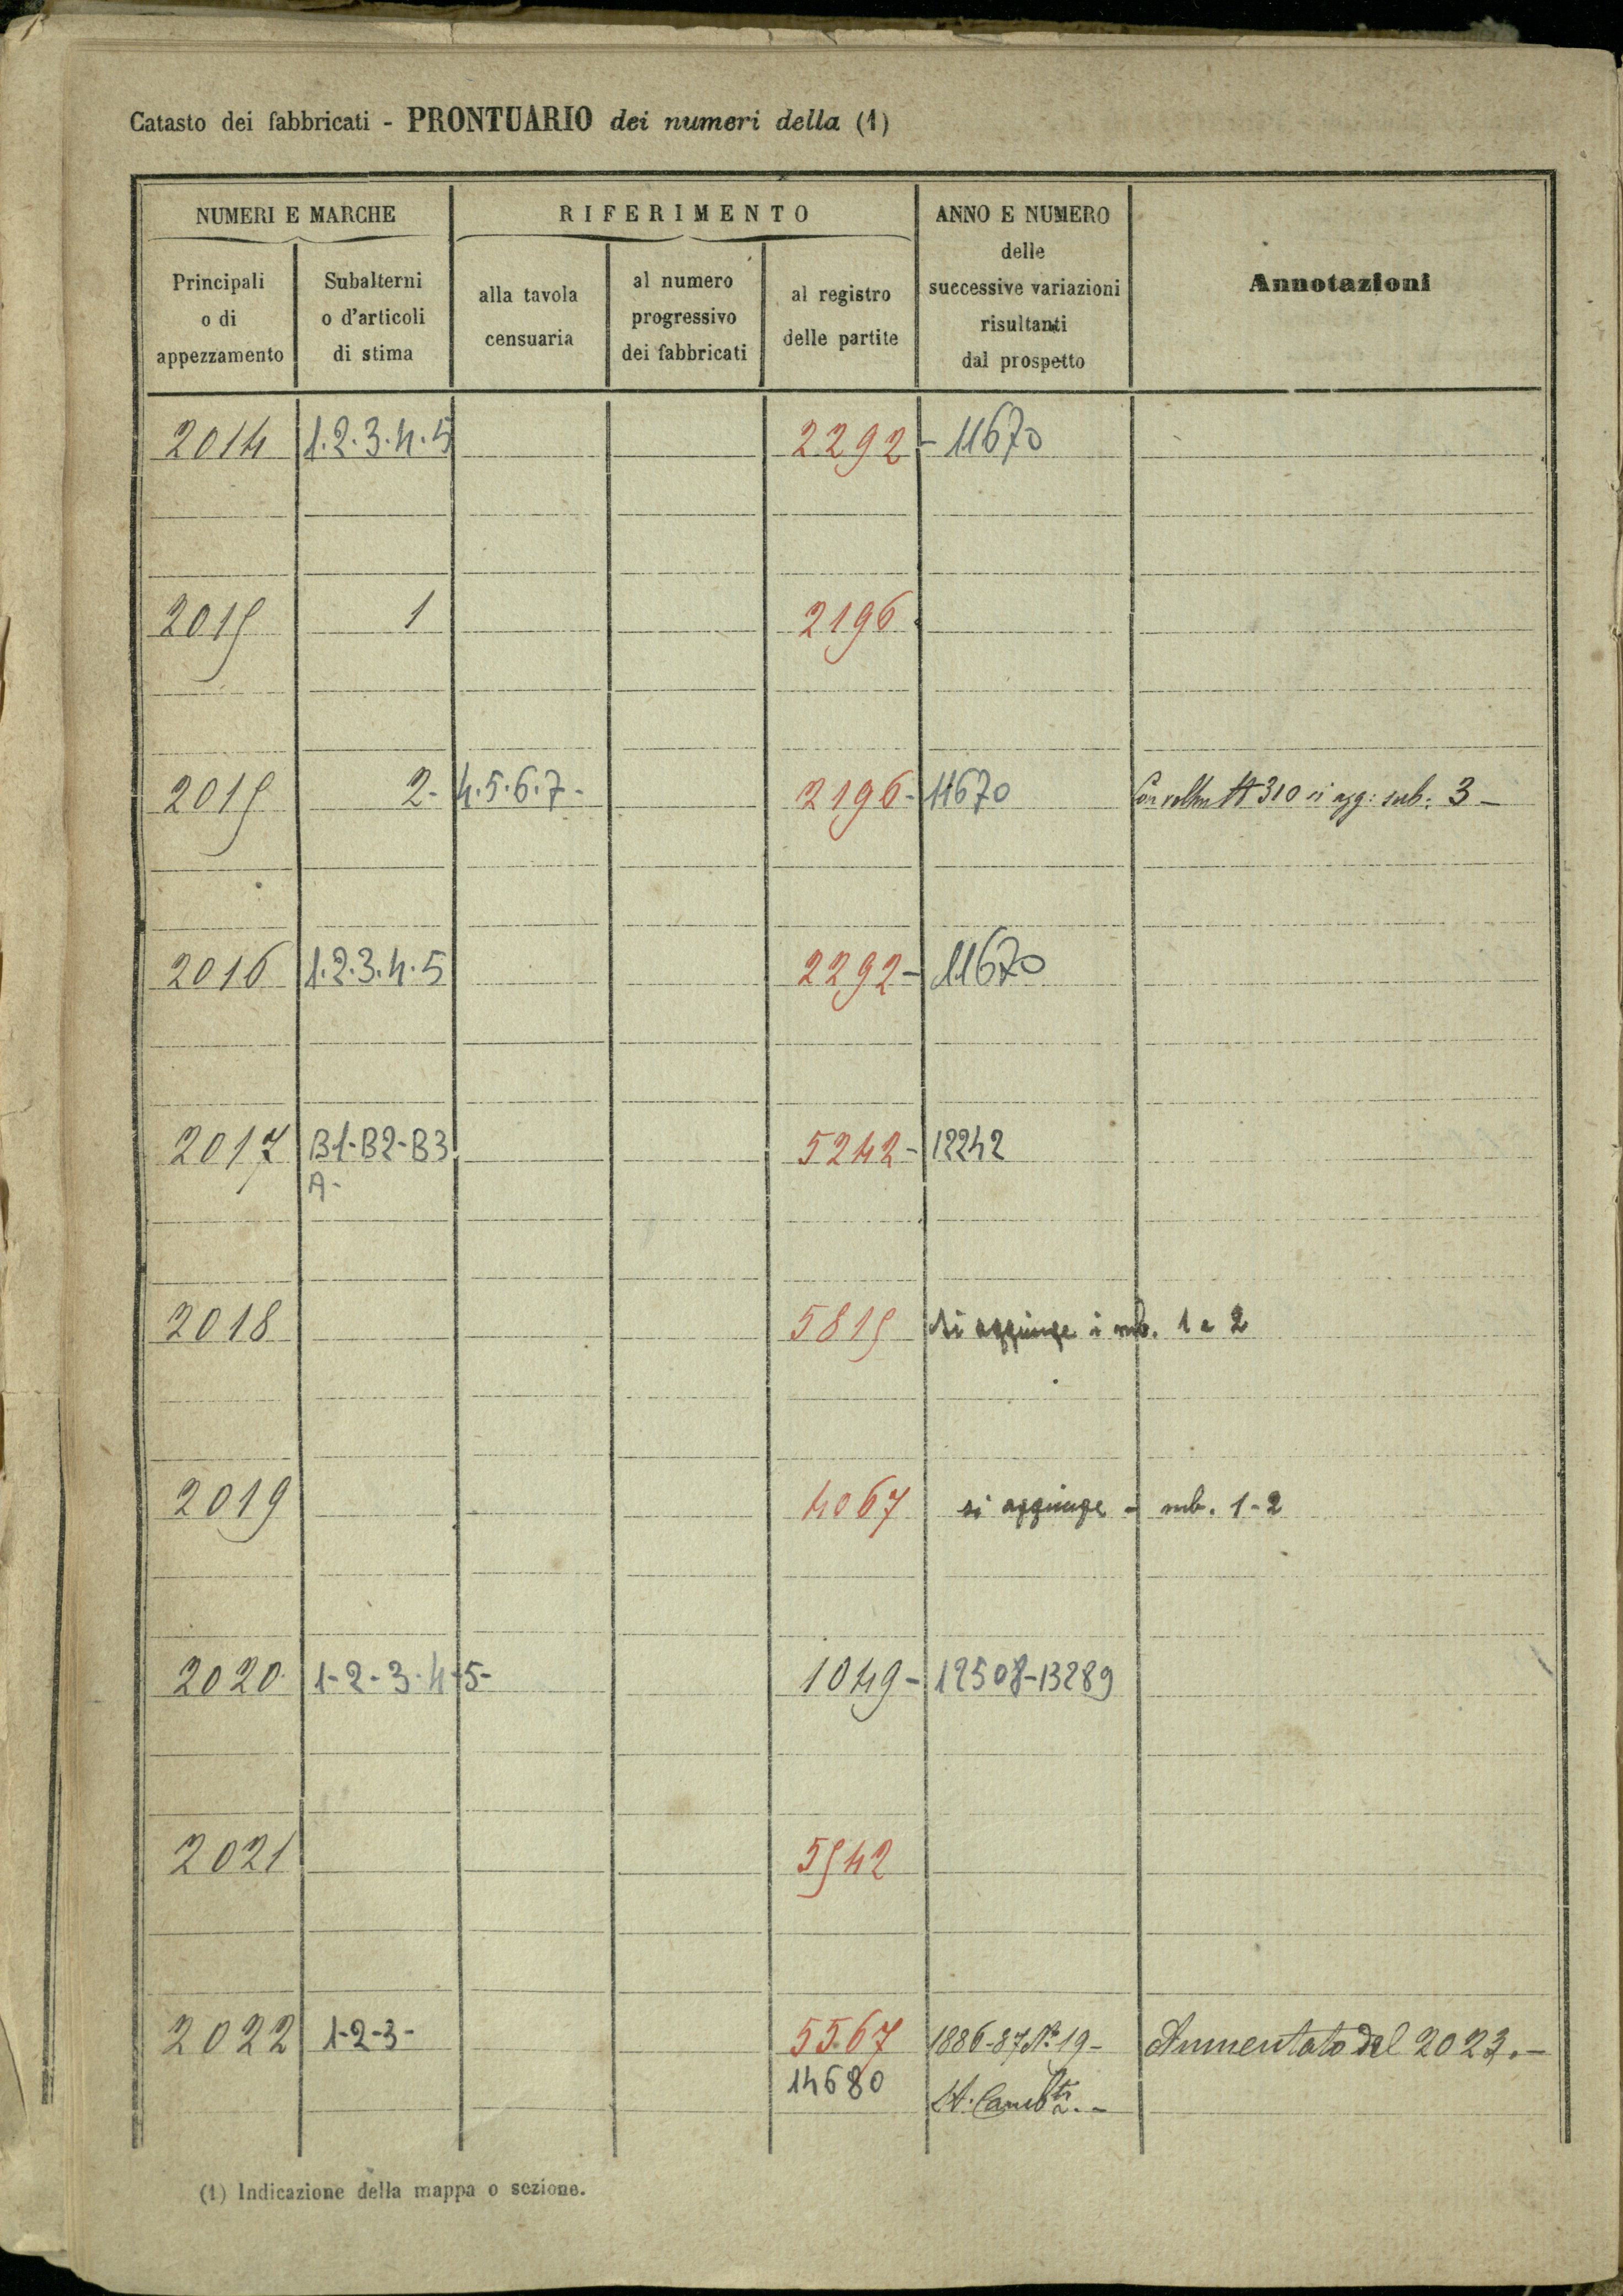 Catasto dei fabbricati - PRONTUARIO dei numeri della (1)
NUMERI E MARCHE
RIFERIMENTO
ANNO E NUMERO
delle
successive variazioni
risultanti
dal prospetto
Annotazioni
Principali
o di
appezzamento
Subalterni
o d'articoli
di stima
alla tavola
censuaria
al numero
progressivo
dei fabbricati
al registro
delle partite
2014 1.2.3.4.5 2292 - 11670
2015 1 2196
2015 2- 4.5.6.7- 2196- 11670 310 si agg: sub: 3 -
2016 1.2.3.4.5 2292- 11670
2017 B1-B2-B3 5242- 12242
A-
2018 5815 si aggiunge i sub. 1 e 2
2019 4067 si aggiunge - sub. 1-2
2020 1-2-3-4-5- 1049- 12508-13289
2021 5542
2022 1-2-3- 5567 1886-87 N° 19- Aumentato del 2023.-
14680
(1) Indicazione della mappa o sezione.